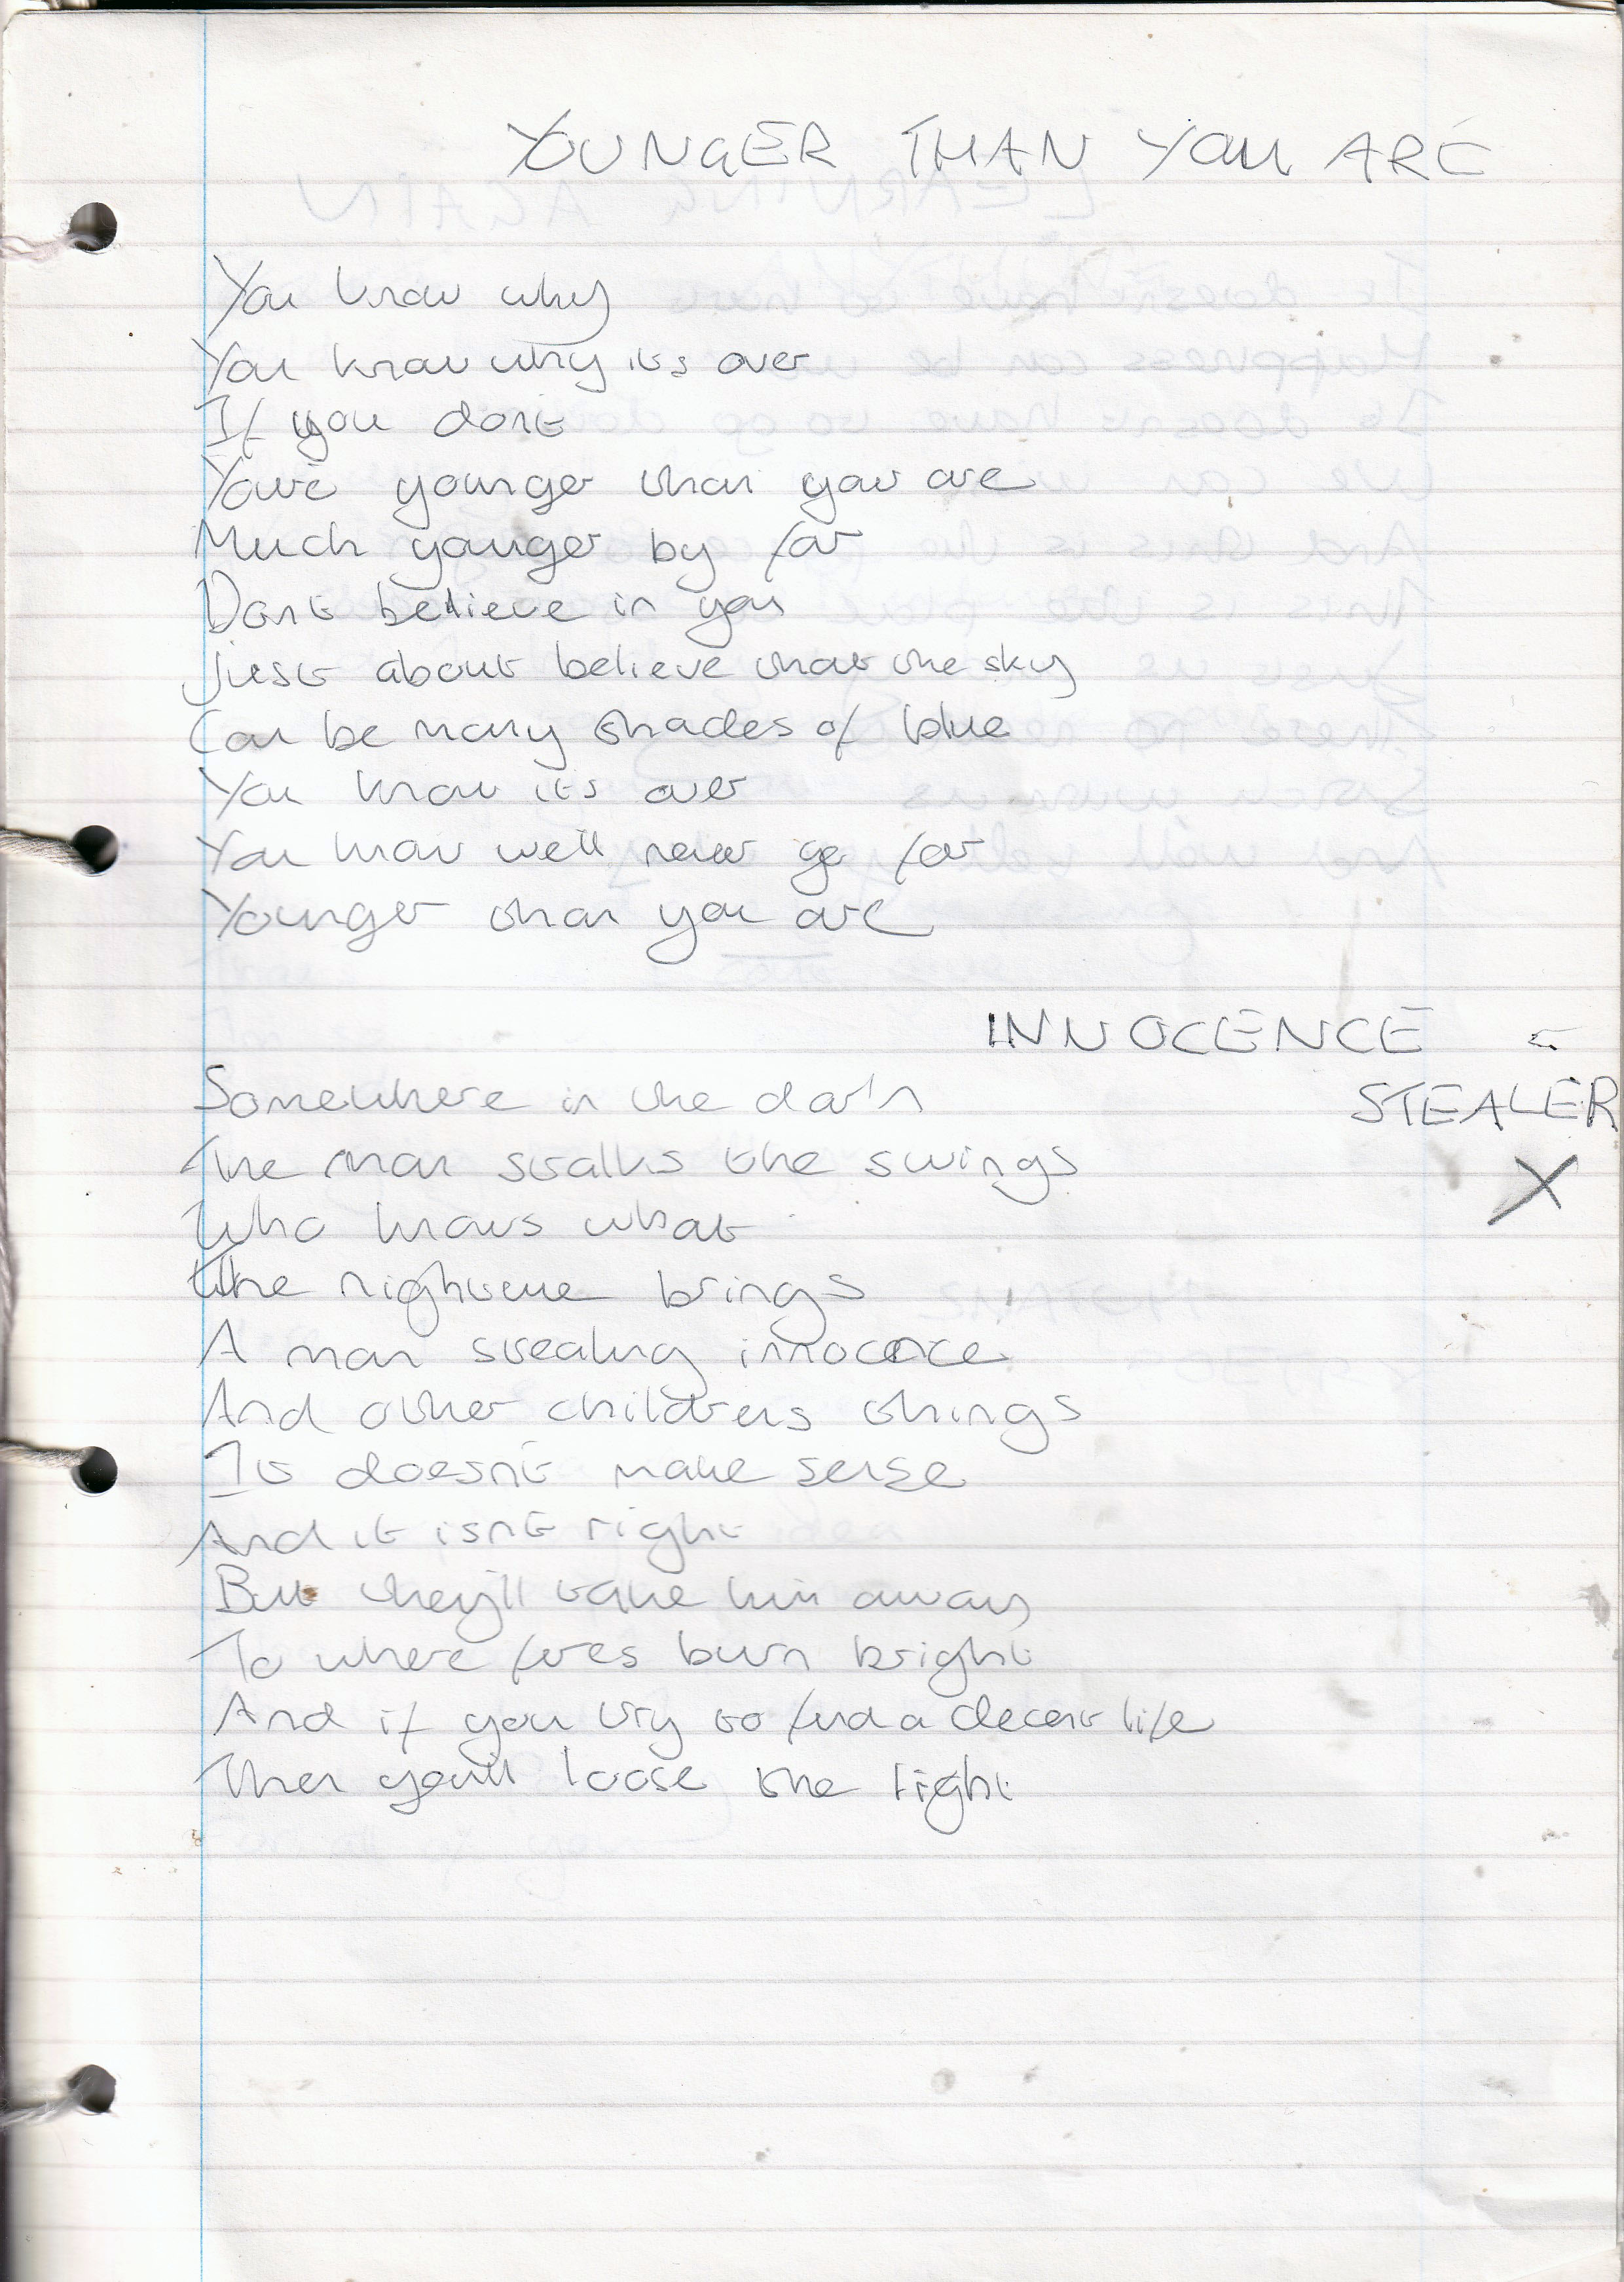 YOUNGER THAN YOU ARE
You know why
You know why its over
If you dont
Youre younger than you are
Much younger by far
Dont believe in you
Just about believe that the sky
Can be many shades of blue
You know its over
You know we'll never go far
Younger than you are
INNOCENCE -
STEALER
X
Somewhere in the dark
The man stalks the swings
Who knows what
The nightime brings
A man stealing innocence
And other childrens things
It doesnt make sense
And it isnt right
But they'll take him away
To where fires burn bright
And if you try to find a decent life
Then you'll loose the fight